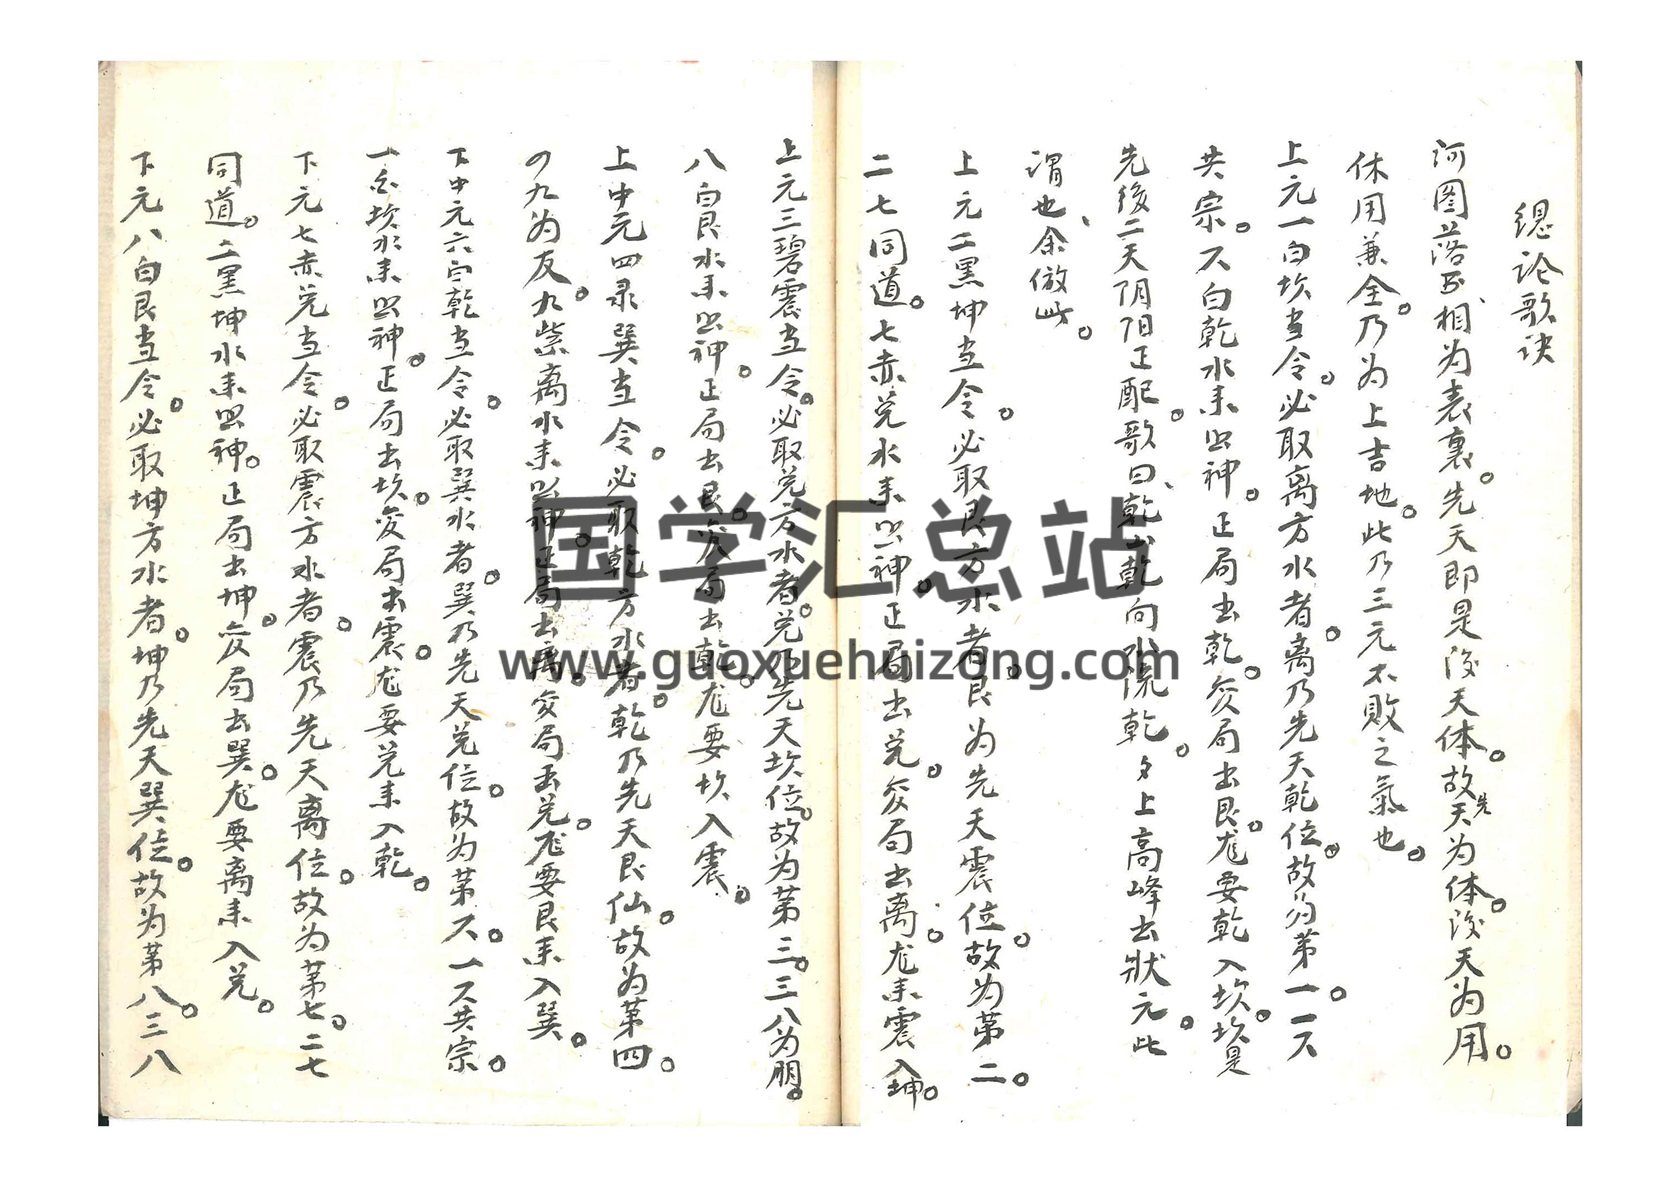 總论歌诀
河图落书、相为表裏。先天即是後天体。故先天为体。後天为用。
休用兼全。乃为上吉地。此乃三元不败之氣也。
上元一白坎当令。必取离方水者。离乃先天乾位。故为第一。一六
共宗。六白乾水来照神。正局出乾。变局出艮。龙要乾入坎。坎是
先後二天阴阳正配。歌曰、乾山乾向水流乾。乾上高峰出狀元。此
谓也、余倣此。
上元二黑坤当令。必取艮方水者。艮为先天震位。故为第二。
二七同道。七赤兑水来照神。正局出兑。变局出离。龙来震入坤。
上元三碧震当令。必取兑方水者。兑乃先天坎位。故为第三。三八为朋。
八白艮水来照神。正局出艮。变局出乾。龙要坎入震。
上中元四录巽当令。必取乾方水者。乾乃先天艮仙。故为第四。
四九为友。九紫离水来照神。正局出离。变局出兑。龙要艮来入巽。
下中元六白乾当令。必取巽水者。巽乃先天兑位。故为第六。一六共宗。
一白坎水来照神。正局出坎。变局出震。龙要兑来入乾。
下元七赤兑当令。必取震方水者。震乃先天离位。故为第七。二七
同道。二黑坤水来照神。正局出坤。变局出巽。龙要离来入兑。
下元八白艮当令。必取坤方水者。坤乃先天巽位。故为第八。三八
国学汇总站
www.guoxuehuizong.com